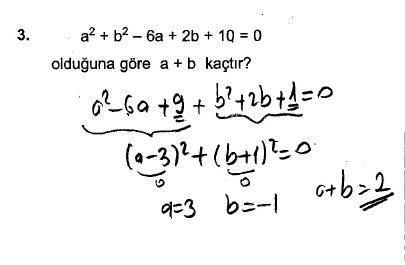 3. a² + b² – 6a + 2b + 10 = 0
olduğuna göre a + b kaçtır?
a²-6a+9 + b²+2b+1=0
(a-3)²+(b+1)²=0
0 0
a=3 b=-1
a+b=2